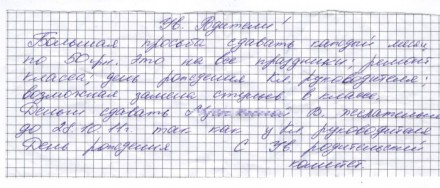 Ув. Родители!
Большая просьба сдавать каждый месяц
по 50 грн. Это на все праздники; ремонт
класса; день рождения кл. руководителя;
возможная замена стульев в классе.
Деньги сдавать В. желательно
до 28.10.11г. так как у кл руководителя
День рождения С Ув родительский
комитет.